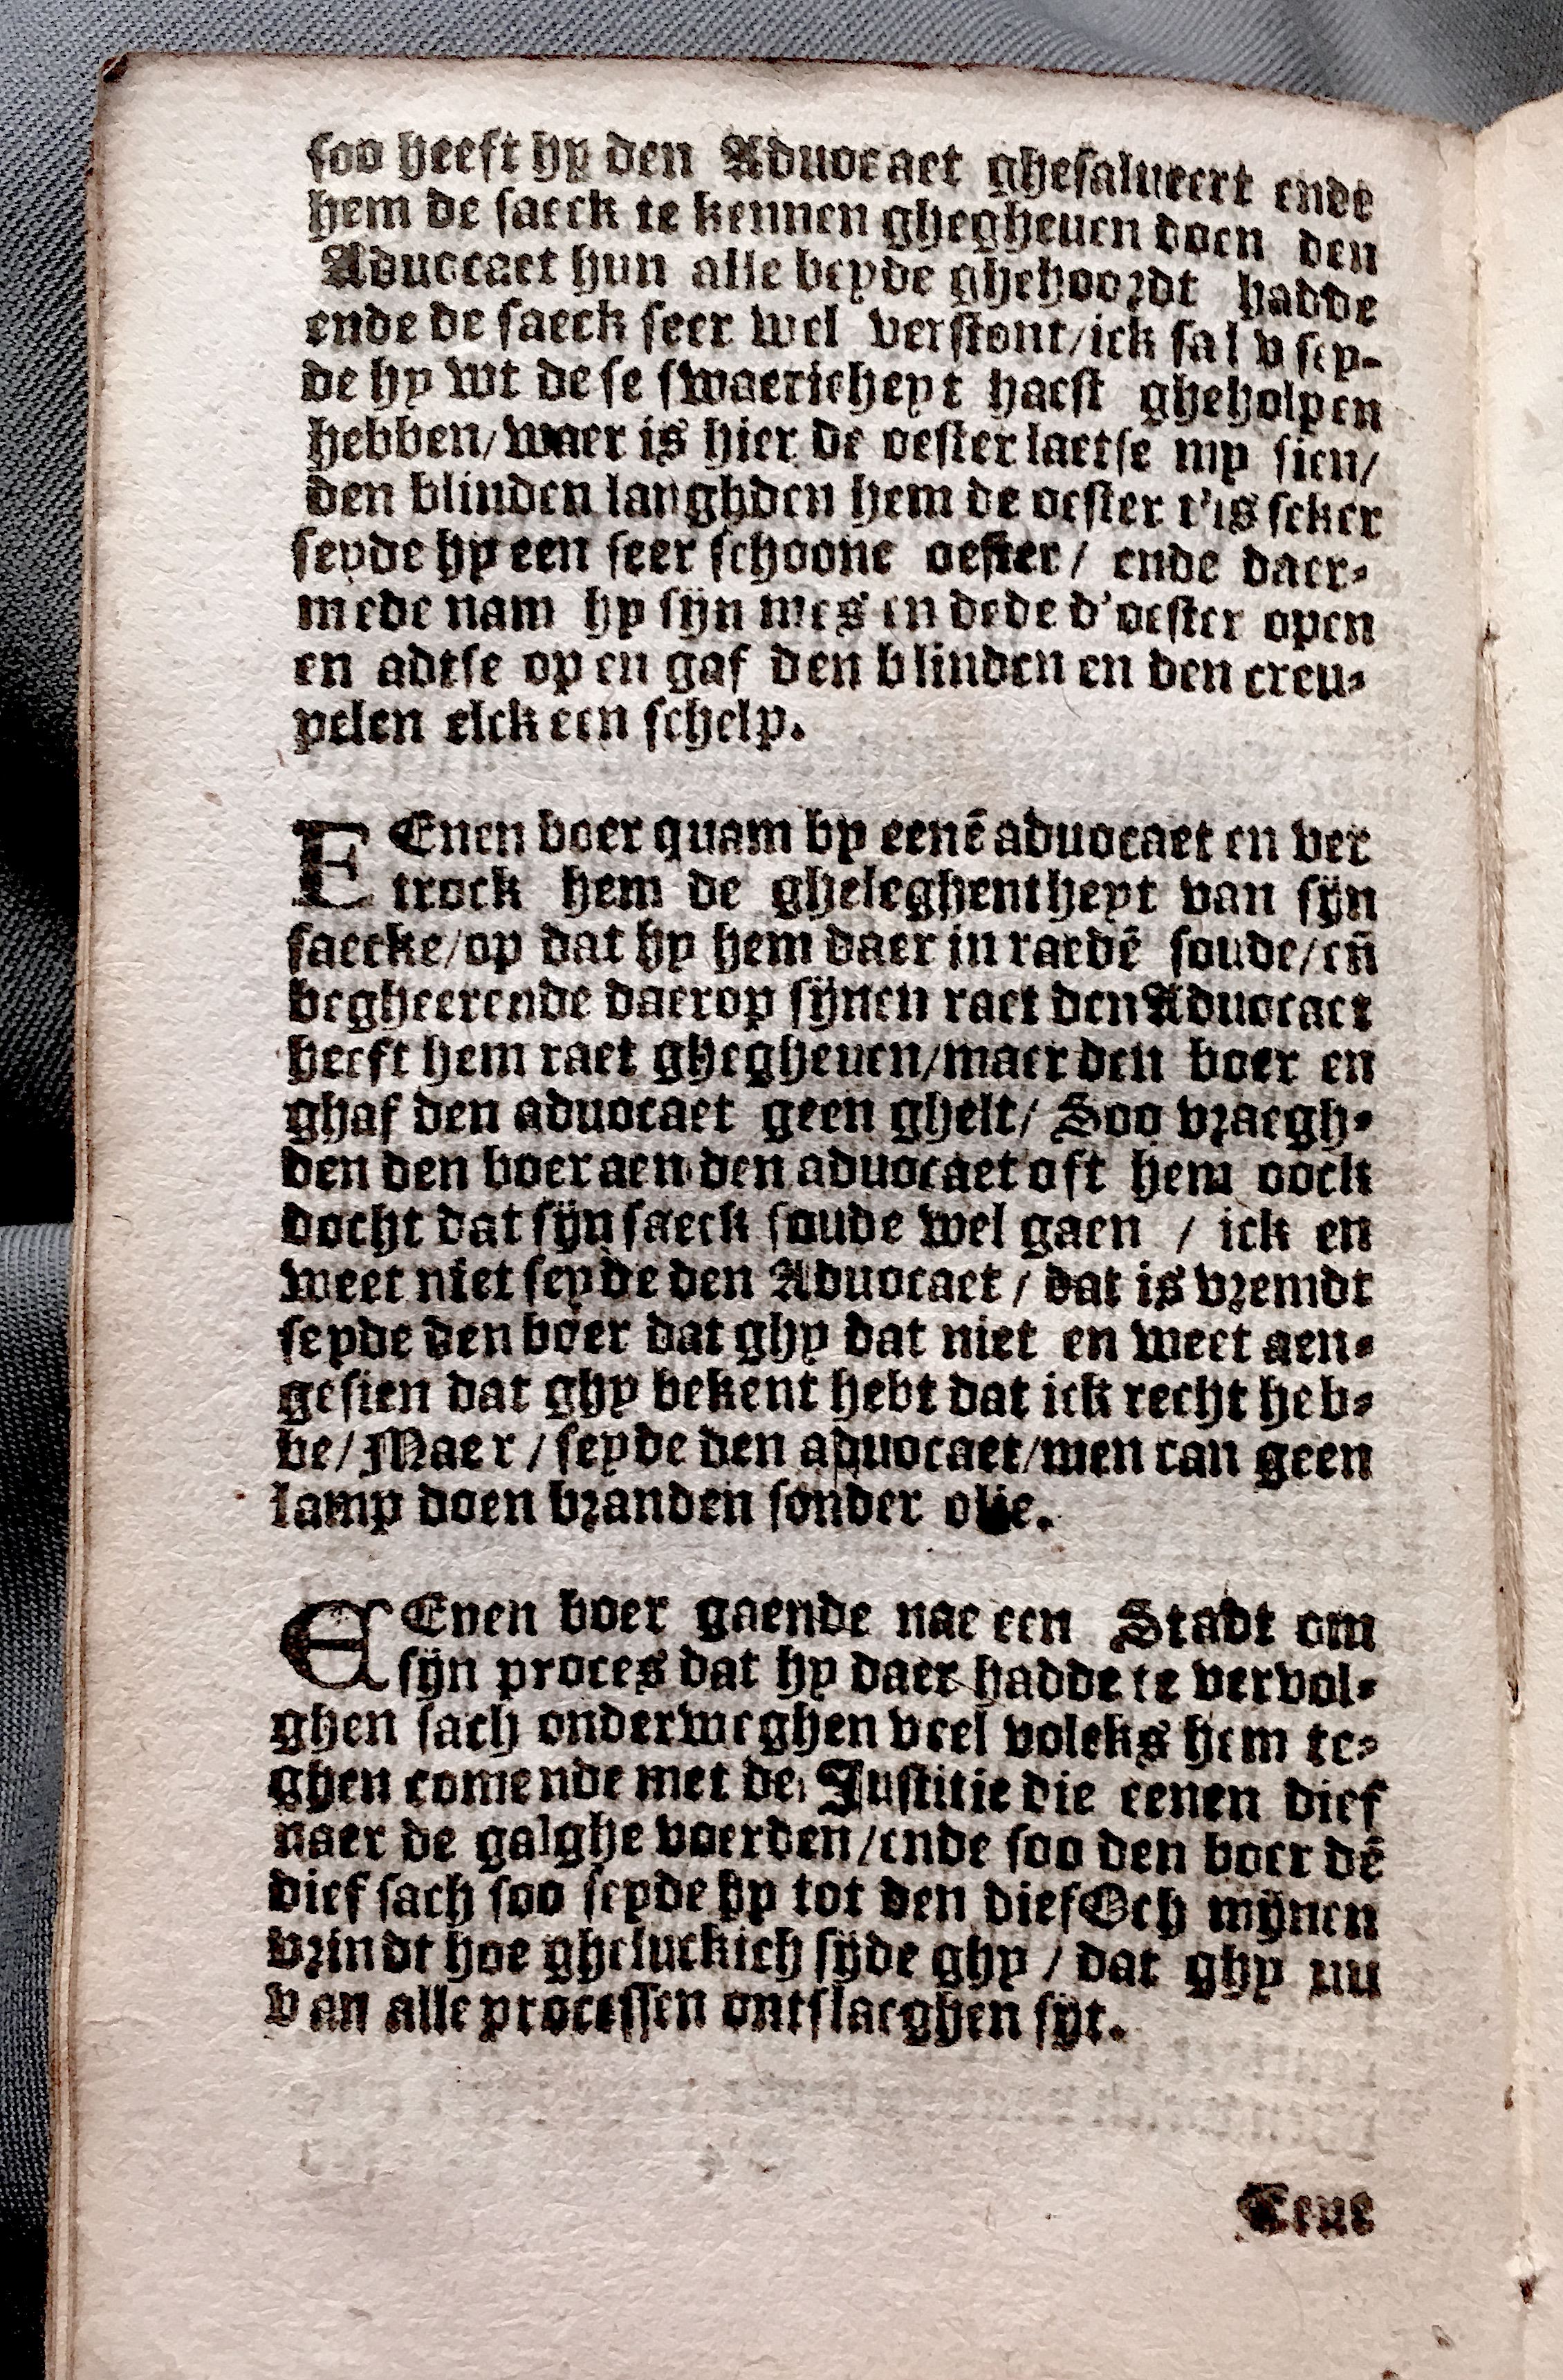 soo heeft hy den Aduocaet ghesalueert ende
hem de saeck te kennen ghegheuen doen den
Aduocaet hun alle beyde ghehoordt hadde
ende de saeck seer wel verstont/ick sal v sey-
de hy wt dese swaericheyt haest gheholpen
hebben/waer is hier de oester laetse my sien/
den blinden langhden hem de oester t'is seker
seyde hy een seer schoone oester/ ende daer-
mede nam hy sijn mes en dede d'oester open
en adtse op en gaf den blinden en den creu-
pelen elck een schelp.
EEnen boer quam by eenē aduocaet en ver
trock hem de gheleghentheyt van sijn
saecke/op dat hy hem daer in raedē soude/eñ
begheerende daerop sijnen raet den Aduocaet
heeft hem raet ghegheuen/maer den boer en
ghaf den aduocaet geen ghelt/ Soo vraegh-
den den boer aen den aduocaet oft hem oock
docht dat sijn saeck soude wel gaen / ick en
weet niet seyde den Aduocaet / dat is vremdt
seyde den boer dat ghy dat niet en weet aen-
gesien dat ghy bekent hebt dat ick recht heb-
be/ Maer / seyde den aduocaet/men can geen
lamp doen branden sonder olie.
EEnen boer gaende nae een Stadt om
sijn proces dat hy daer hadde te vervol-
ghen sach onderweghen veel volcks hem te-
ghen comende met de Justitie die eenen dief
naer de galghe voerden/ende soo den boer dē
dief sach soo seyde hy tot den dief Och mijnen
vrindt hoe gheluckich sijde ghy / dat ghy nu
van alle processen ontslaeghen sijt.
Eene